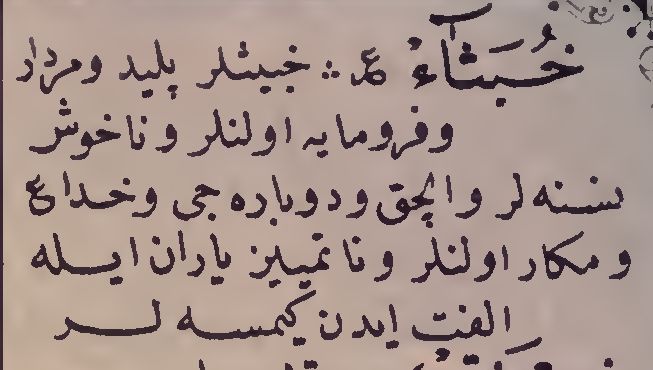 خُبَثَاءُ ع ∴ خبيثلر پليد ومردار
وفرومايه اولنلر وناخوش
نسنه لر والچق ودوباره جى وخداع
ومكار اولنلر وناتمييز ياران ايله
الفت ايدن كيمسه لر